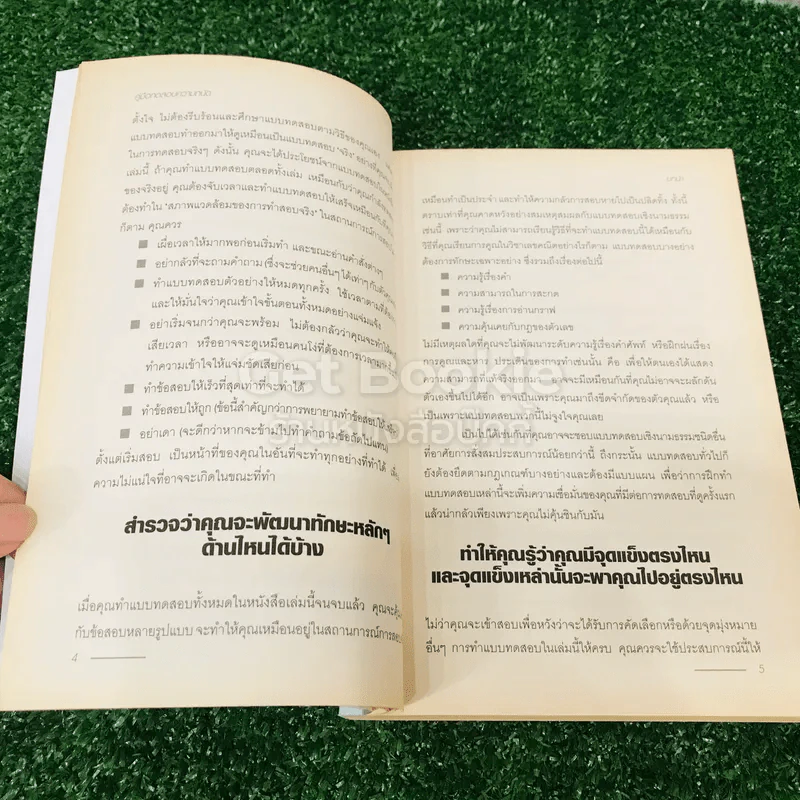 คู่มือทดสอบความถนัด
ตั้งใจ ไม่ต้องรีบร้อนและศึกษาแบบทดสอบตามวิธีของคุณเอง
แบบทดสอบทำออกมาให้ดูเหมือนเป็นแบบทดสอบ "จริง" อย่างที่คุณ
ในการทดสอบจริงๆ ดังนั้น คุณจะได้ประโยชน์จากแบบทดสอบใน
เล่มนี้ ถ้าคุณทำแบบทดสอบตลอดทั้งเล่ม เหมือนกับว่าคุณกำลัง
ของจริงอยู่ คุณต้องจับเวลาและทำแบบทดสอบให้เสร็จเหมือนกับ
ต้องทำใน "สภาพแวดล้อมของการทำสอบจริง" ในสถานการณ์การสอบ
ก็ตาม คุณควร
■ เผื่อเวลาให้มากพอก่อนเริ่มทำ และขณะอ่านคำสั่งต่างๆ
■ อย่ากลัวที่จะถามคำถาม (ซึ่งจะช่วยคนอื่นๆ ได้เท่าๆ กับตัวคุณ
■ ทำแบบทดสอบตัวอย่างให้หมดทุกครั้ง ใช้เวลาตามที่ต้อง
และให้มั่นใจว่าคุณเข้าใจขั้นตอนทั้งหมดอย่างแจ่มแจ้ง
■ อย่าเริ่มจนกว่าคุณจะพร้อม ไม่ต้องกลัวว่าคุณจะทำให้
เสียเวลา หรืออาจจะดูเหมือนคนโง่ที่ต้องการเวลา
ทำความเข้าใจให้แจ่มชัดเสียก่อน
■ ทำข้อสอบให้เร็วที่สุดเท่าที่จะทำได้
■ ทำข้อสอบให้ถูก (ข้อนี้สำคัญกว่าการพยายามทำข้อสอบให้
■ อย่าเดา (จะดีกว่าหากจะข้ามไปทำคำถามข้อถัดไปแทน)
ตั้งแต่เริ่มสอบ เป็นหน้าที่ของคุณในอันที่จะทำทุกอย่างที่ทำได้
ความไม่แน่ใจที่อาจจะเกิดในขณะที่ทำ
สำรวจว่าคุณจะพัฒนาทักษะหลักๆ
ด้านไหนได้บ้าง
เมื่อคุณทำแบบทดสอบทั้งหมดในหนังสือเล่มนี้จนจบแล้ว
กับข้อสอบหลายรูปแบบ จะทำให้คุณเหมือนอยู่ในสถานการณ์การสอบ
4
บทนำ
เหมือนทำเป็นประจำ และทำให้ความกลัวการสอบหายไปเป็นปลิดทิ้ง ทั้งนี้
ตราบเท่าที่คุณคาดหวังอย่างสมเหตุสมผลกับแบบทดสอบเชิงนามธรรม
เช่นนี้ เพราะว่าคุณไม่สามารถเรียนรู้วิธีที่จะทำแบบทดสอบนี้ได้เหมือนกับ
วิธีที่คุณเรียนการคูณในวิชาเลขคณิตอย่างไรก็ตาม แบบทดสอบบางอย่าง
ต้องการทักษะเฉพาะอย่าง ซึ่งรวมถึงเรื่องต่อไปนี้
■ ความรู้เรื่องคำ
■ ความสามารถในการสะกด
■ ความรู้เรื่องการอ่านกราฟ
■ ความคุ้นเคยกับกฎของตัวเลข
ไม่มีเหตุผลใดที่คุณจะไม่พัฒนาระดับความรู้เรื่องคำศัพท์ หรือฝึกฝนเรื่อง
การคูณและหาร ประเด็นของการทำเช่นนั้น คือ เพื่อให้ตนเองได้แสดง
ความสามารถที่แท้จริงออกมา อาจจะมีเหมือนกันที่คุณไม่อาจจะผลักดัน
ตัวเองขึ้นไปได้อีก อาจเป็นเพราะคุณมาถึงขีดจำกัดของตัวคุณแล้ว หรือ
เป็นเพราะแบบทดสอบพวกนี้ไม่จูงใจคุณเลย
เป็นไปได้เช่นกันที่คุณอาจจะชอบแบบทดสอบเชิงนามธรรมชนิดอื่น
ที่อาศัยการสั่งสมประสบการณ์น้อยกว่านี้ ถึงกระนั้น แบบทดสอบทั่วไปก็
ยังต้องยึดตามกฎเกณฑ์บางอย่างและต้องมีแบบแผน เพื่อว่าการฝึกทำ
แบบทดสอบเหล่านี้จะเพิ่มความเชื่อมั่นของคุณที่มีต่อการทดสอบที่ดูครั้งแรก
แล้วน่ากลัวเพียงเพราะคุณไม่คุ้นชินกับมัน
ทำให้คุณรู้ว่าคุณมีจุดแข็งตรงไหน
และจุดแข็งเหล่านั้นจะพาคุณไปอยู่ตรงไหน
ไม่ว่าคุณจะเข้าสอบเพื่อหวังว่าจะได้รับการคัดเลือกหรือด้วยจุดมุ่งหมาย
อื่นๆ การทำแบบทดสอบในเล่มนี้ให้ครบ คุณควรจะใช้ประสบการณ์นี้ให้
5
Get Bookie
ร้านหนังสือบุคคี้